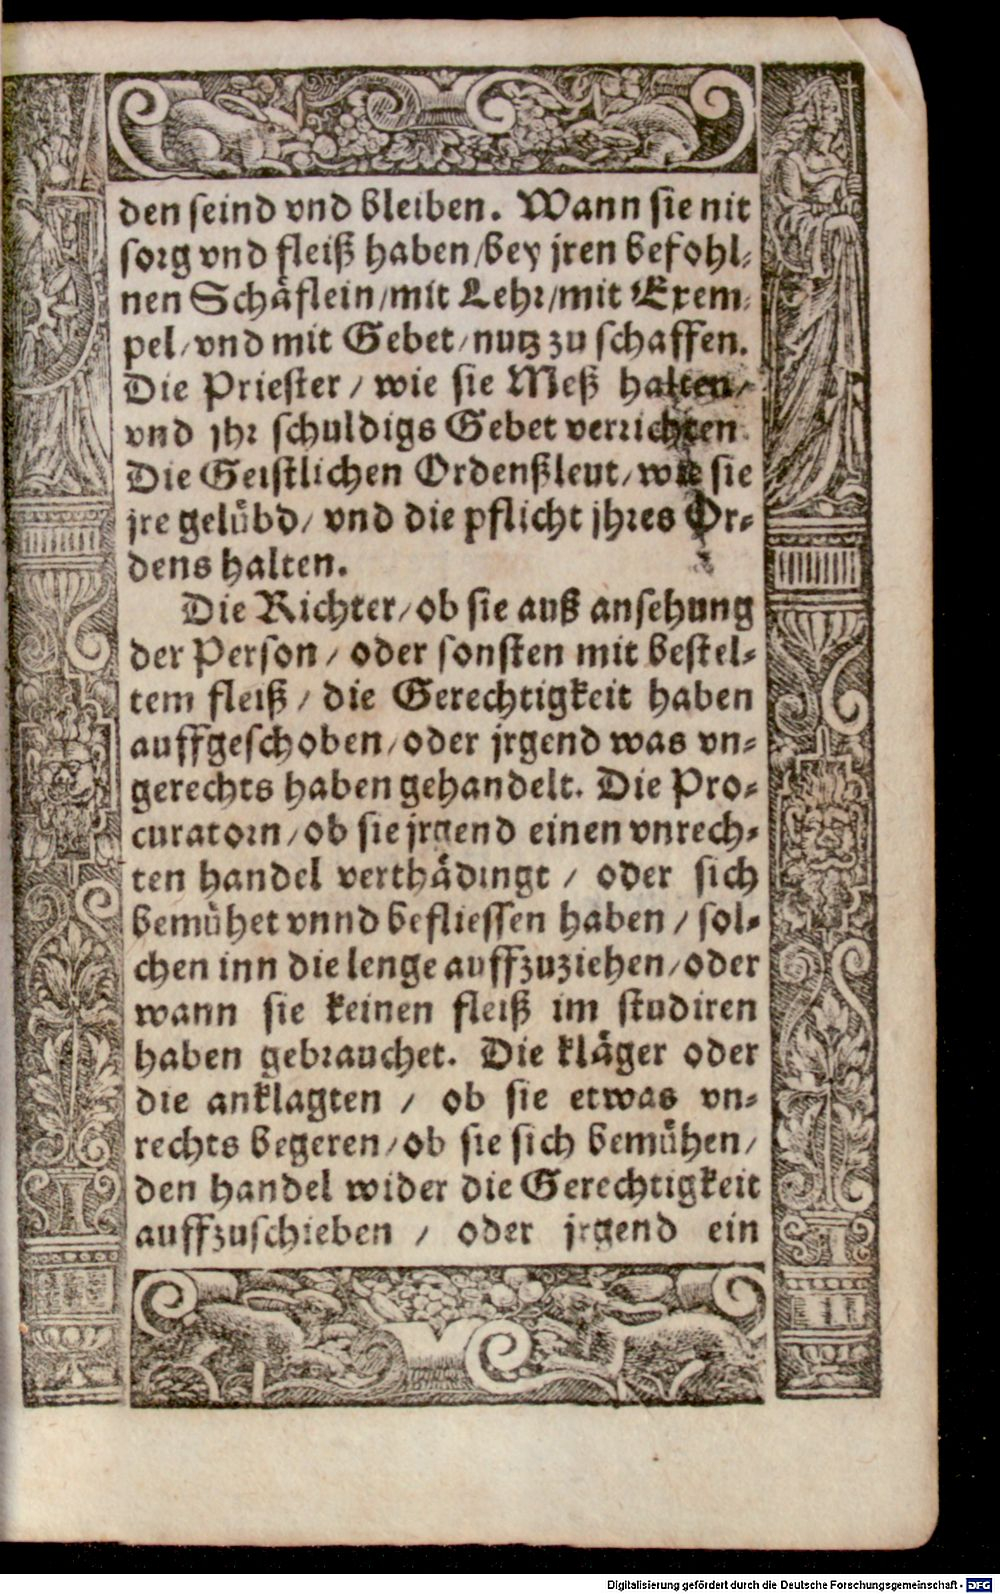 den seind vnd bleiben. Wann sie nit
sorg vnd fleiß haben/bey jren befohl-
nen Schäflein/mit Lehr/mit Exem-
pel/vnd mit Gebet/nutz zu schaffen.
Die Priester/ wie sie Meß halten/
vnd jhr schuldigs Gebet verrichten.
Die Geistlichen Ordenßleut/wie sie
jre gelübd/ vnd die pflicht jhres Or-
dens halten.
Die Richter/ob sie auß ansehung
der Person/ oder sonsten mit bestel-
tem fleiß/ die Gerechtigkeit haben
auffgeschoben/oder jrgend was vn-
gerechts haben gehandelt. Die Pro-
curatorn/ob sie jrgend einen vnrech-
ten handel verthädingt/ oder sich
bemühet vnnd befliessen haben/ sol-
chen inn die lenge auffzuziehen/oder
wann sie keinen fleiß im studiren
haben gebrauchet. Die kläger oder
die anklagten/ ob sie etwas vn-
rechts begeren/ob sie sich bemühen/
den handel wider die Gerechtigkeit
auffzuschieben/ oder jrgend ein
Digitalisierung gefördert durch die Deutsche Forschungsgemeinschaft - DFG